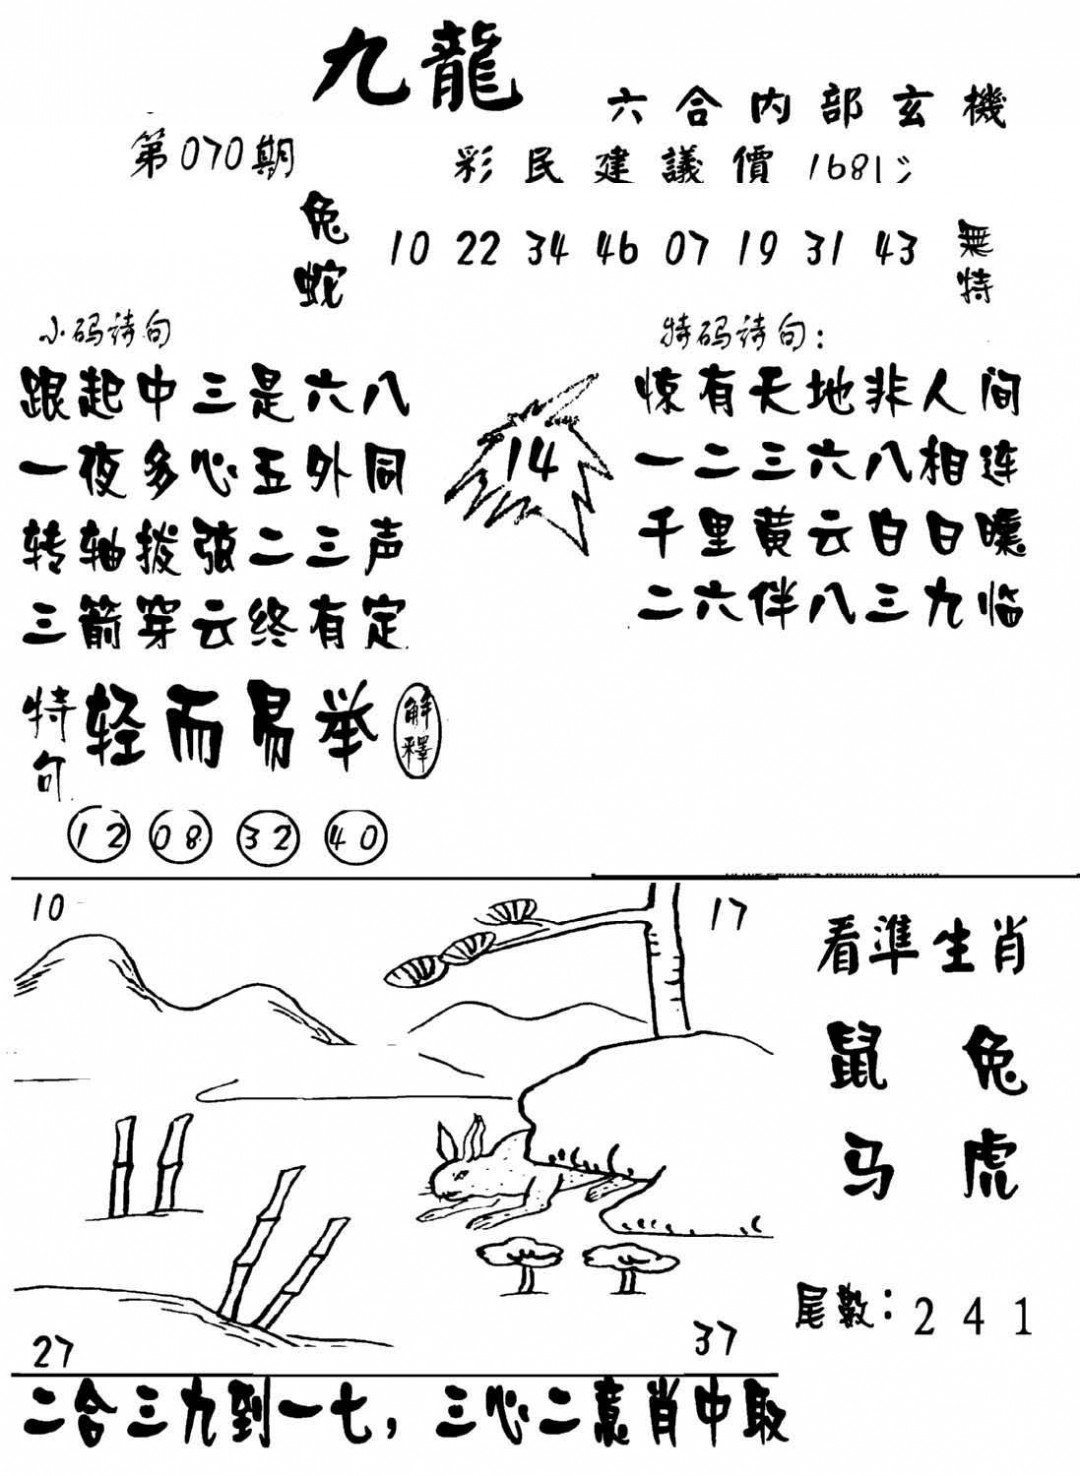 九龍
六合内部玄機
第070期
彩民建議價 168
兔蛇
10 22 34 46 07 19 31 43
無特
小码诗句
跟起中三是六八
一夜多心五外同
转轴拨弦二三声
三箭穿云终有定
14
特码诗句：
惊有天地非人间
一二三六八相连
千里黄云白日曛
二六伴八三九临
特句
轻而易举
解釋
12 08 32 40
10
17
27
37
看準生肖
鼠 兔
马 虎
尾數：2 4 1
二合三九到一七，三心二意肖中取